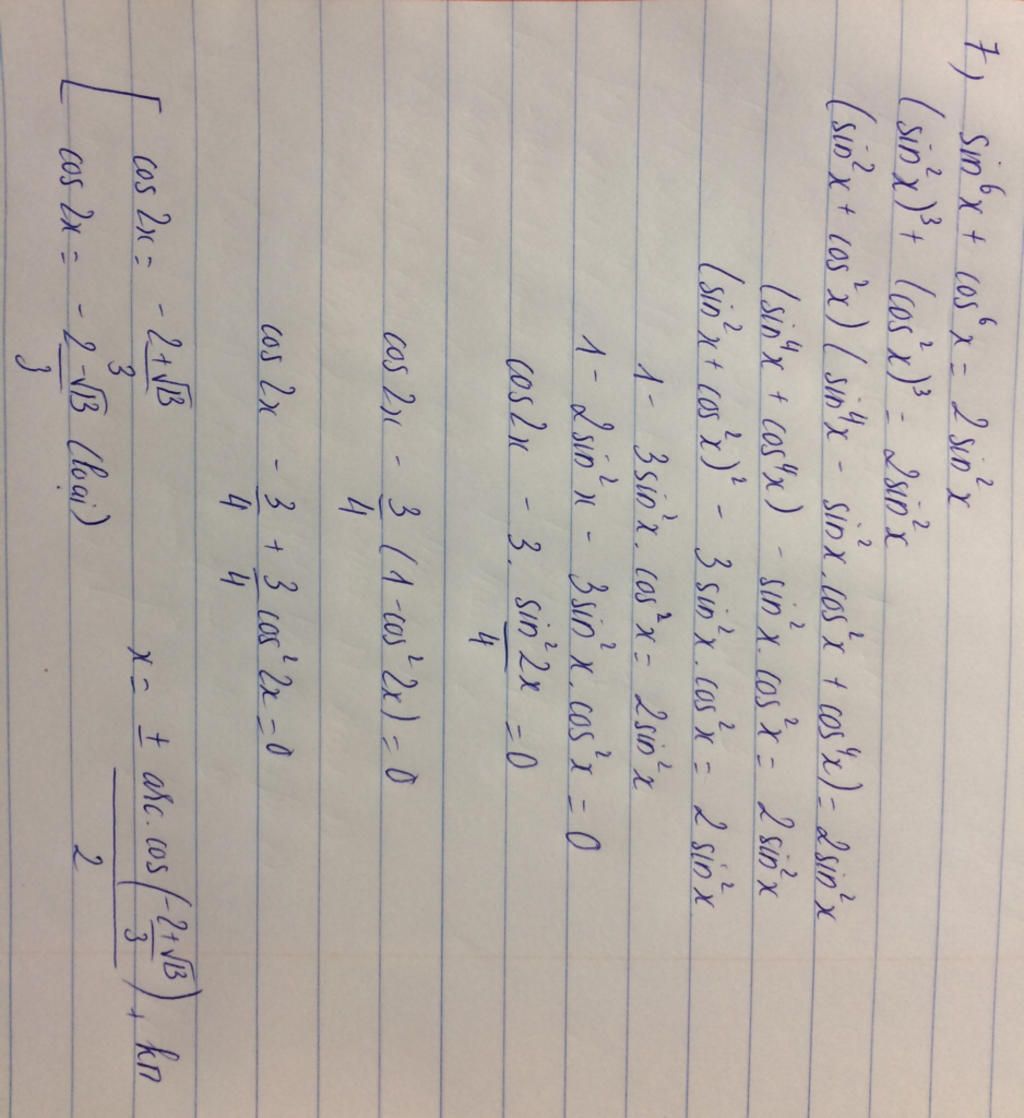 7) sin⁶x + cos⁶x = 2sin²x
(sin²x)³ + (cos²x)³ = 2sin²x
(sin²x + cos²x)(sin⁴x - sin²x.cos²x + cos⁴x) = 2sin²x
(sin⁴x + cos⁴x) - sin²x.cos²x = 2sin²x
(sin²x + cos²x)² - 3sin²x.cos²x = 2sin²x
1 - 3sin²x.cos²x = 2sin²x
1 - 2sin²x - 3sin²x.cos²x = 0
cos2x - 3.sin²2x/4 = 0
cos2x - 3/4(1-cos²2x) = 0
cos2x - 3/4 + 3/4cos²2x = 0
[ cos2x = -2+√13/3 x = ± arc.cos(-2+√13/3)/2 + kπ
cos2x = -2-√13/3 (loại)